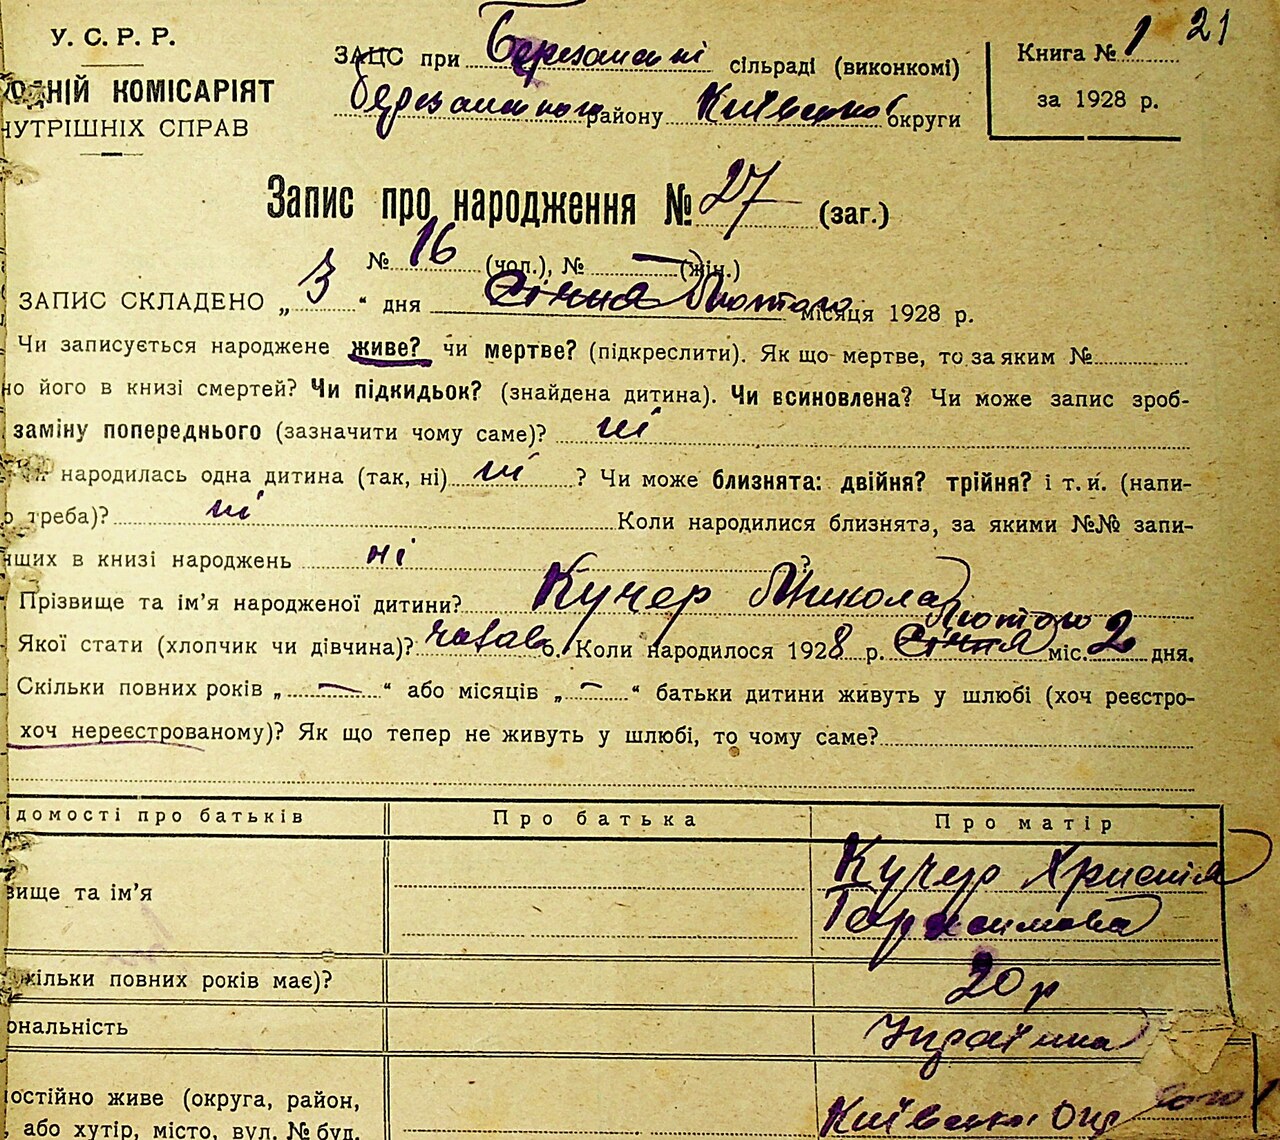 У. С. Р. Р.
ОДНІЙ КОМІСАРІЯТ
НУТРІШНІХ СПРАВ
ЗАЦС при Березанскі сільраді (виконкомі)
Березанского району Київської округи
Книга № 1 21
за 1928 р.
Запис про народження № 27 (заг.)
№ 16 (чол.), № — (жін.)
ЗАПИС СКЛАДЕНО „ 3 “ дня Січня Лютого місяця 1928 р.
Чи записується народжене живе? чи мертве? (підкреслити). Як що мертве, то за яким №
но його в книзі смертей? Чи підкидьок? (знайдена дитина). Чи всиновлена? Чи може запис зроб-
заміну попереднього (зазначити чому саме)? ні
народилась одна дитина (так, ні) ні ? Чи може близнята: двійня? трійня? і т. и. (напи-
о треба)? ні Коли народилися близнята, за якими №№ запи-
нших в книзі народжень ні ?
Прізвище та ім’я народженої дитини? Кучер Микола
Якої статі (хлопчик чи дівчина)? чолов. Коли народилося 1928 р. Січня Лютого міс. 2 дня.
Скільки повних років „ — “ або місяців „ — “ батьки дитини живуть у шлюбі (хоч реєстро-
хоч нереєстрованому)? Як що тепер не живуть у шлюбі, то чому саме?
ідомості про батьків Про батька Про матір
вище та ім’я Кучер Христія
Герасимова
кільки повних років має)? 20 р
ональність Украінка
остійно живе (округа, район, Київська Окр
, або хутір, місто, вул. № буд.